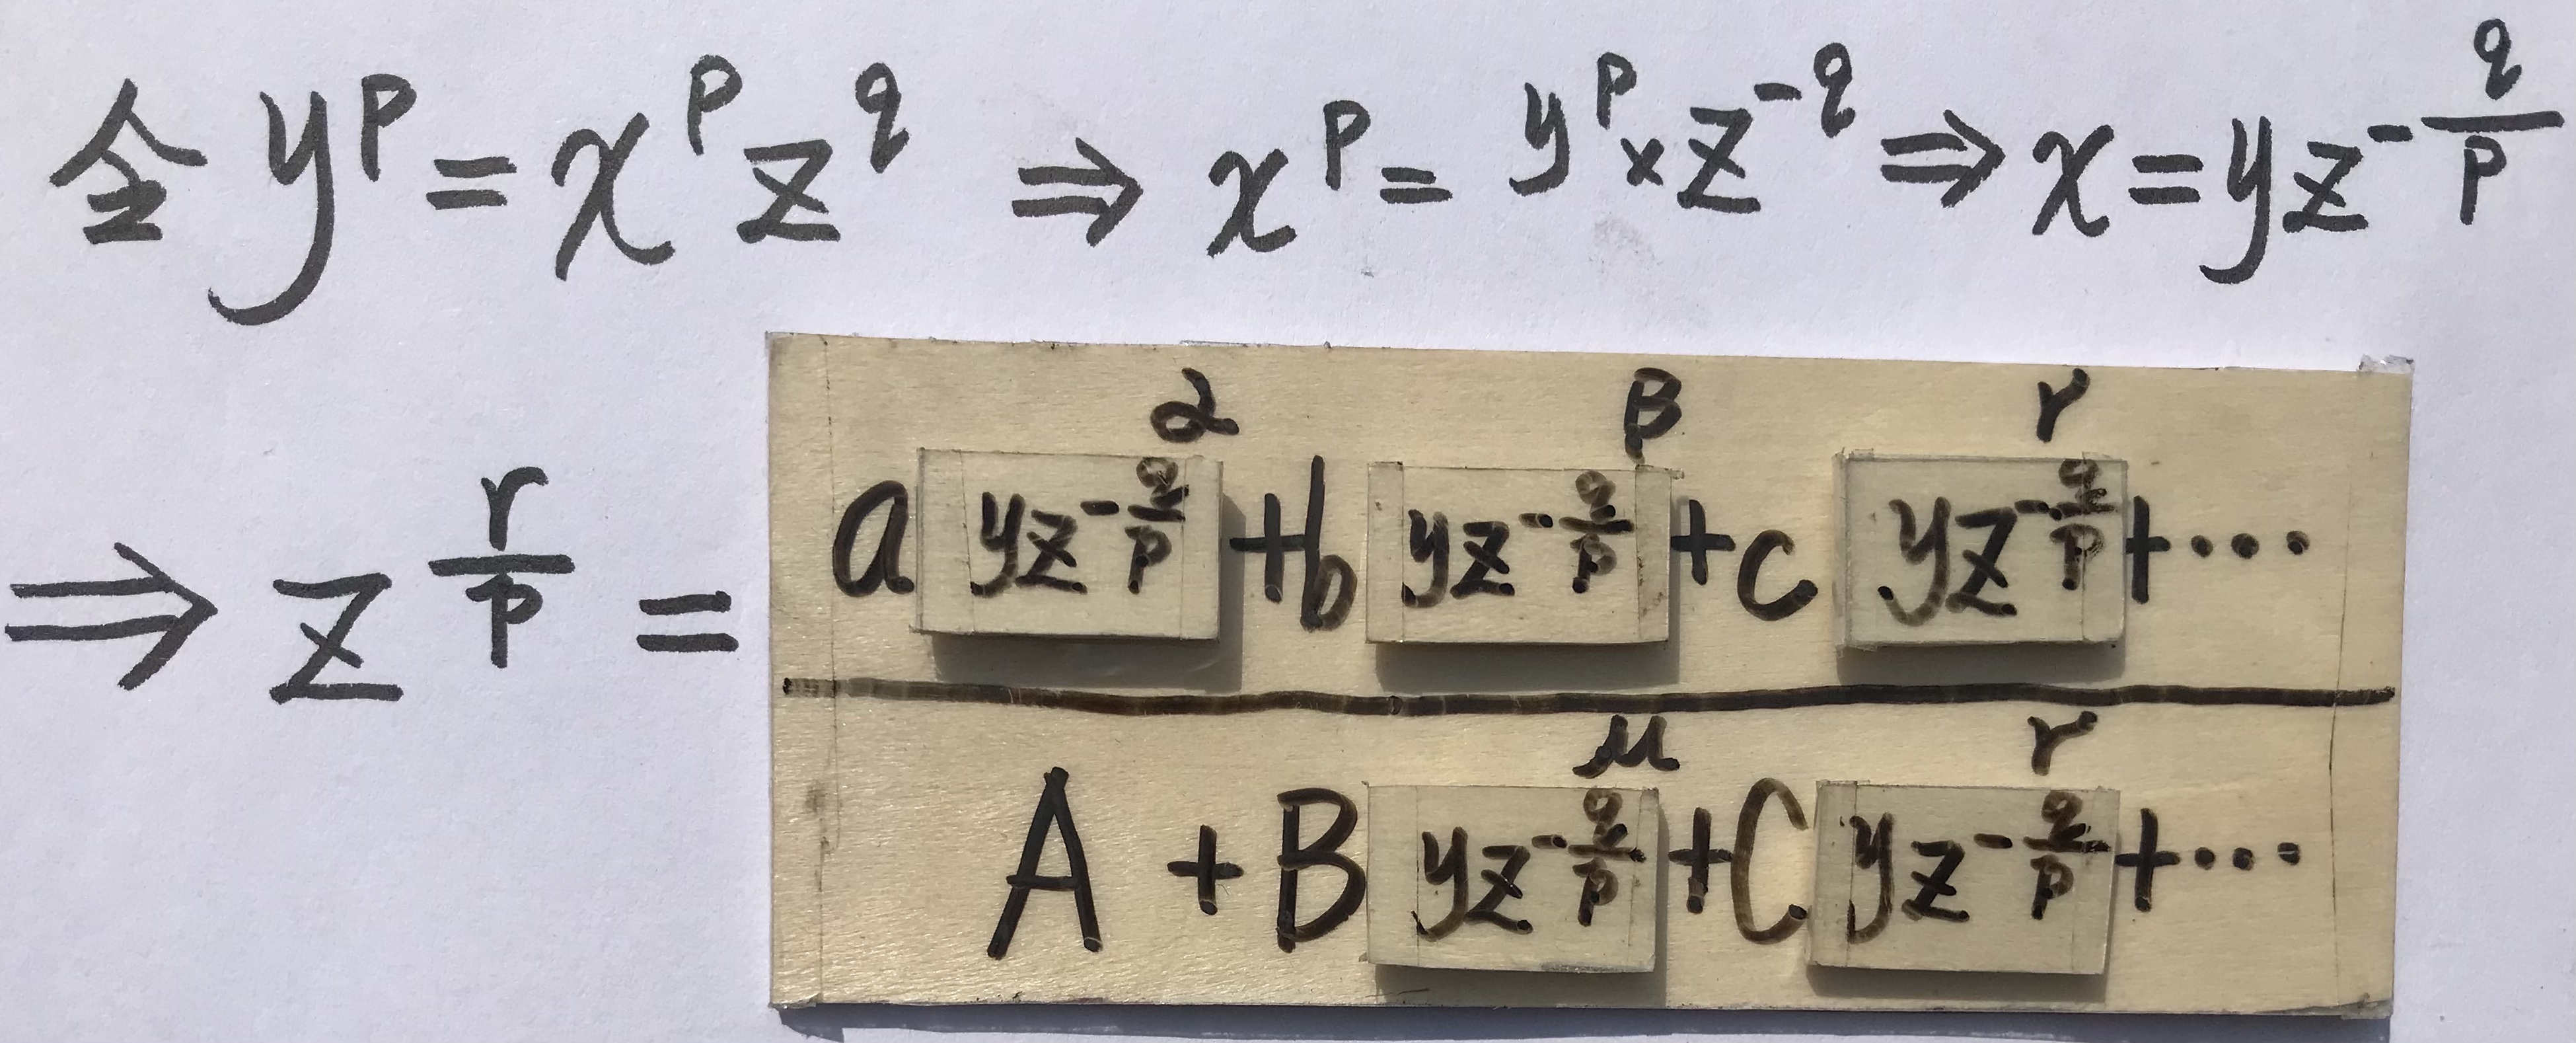 令 y^p = x^p z^q ⇒ x^p = y^p × z^{-q} ⇒ x = y z^{-\frac{q}{p}}
⇒ z^{\frac{r}{p}} = \frac{a [y z^{-\frac{q}{p}}]^α + b [y z^{-\frac{q}{p}}]^β + c [y z^{-\frac{q}{p}}]^γ + ···}{A + B [y z^{-\frac{q}{p}}]^μ + C [y z^{-\frac{q}{p}}]^γ + ···}